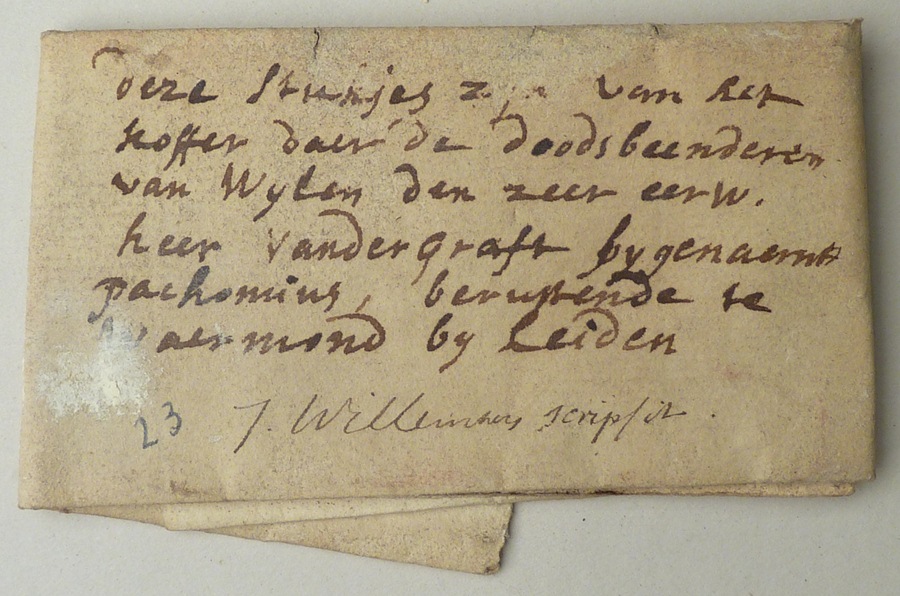 deze stukjes zyn van het
koffer daer de doodsbeenderen
van Wylen den zeer eerw.
heer vander graft bygenaemt
pachomius, berustende te
waermond by Leiden
23 J. Willemsens scripsit.